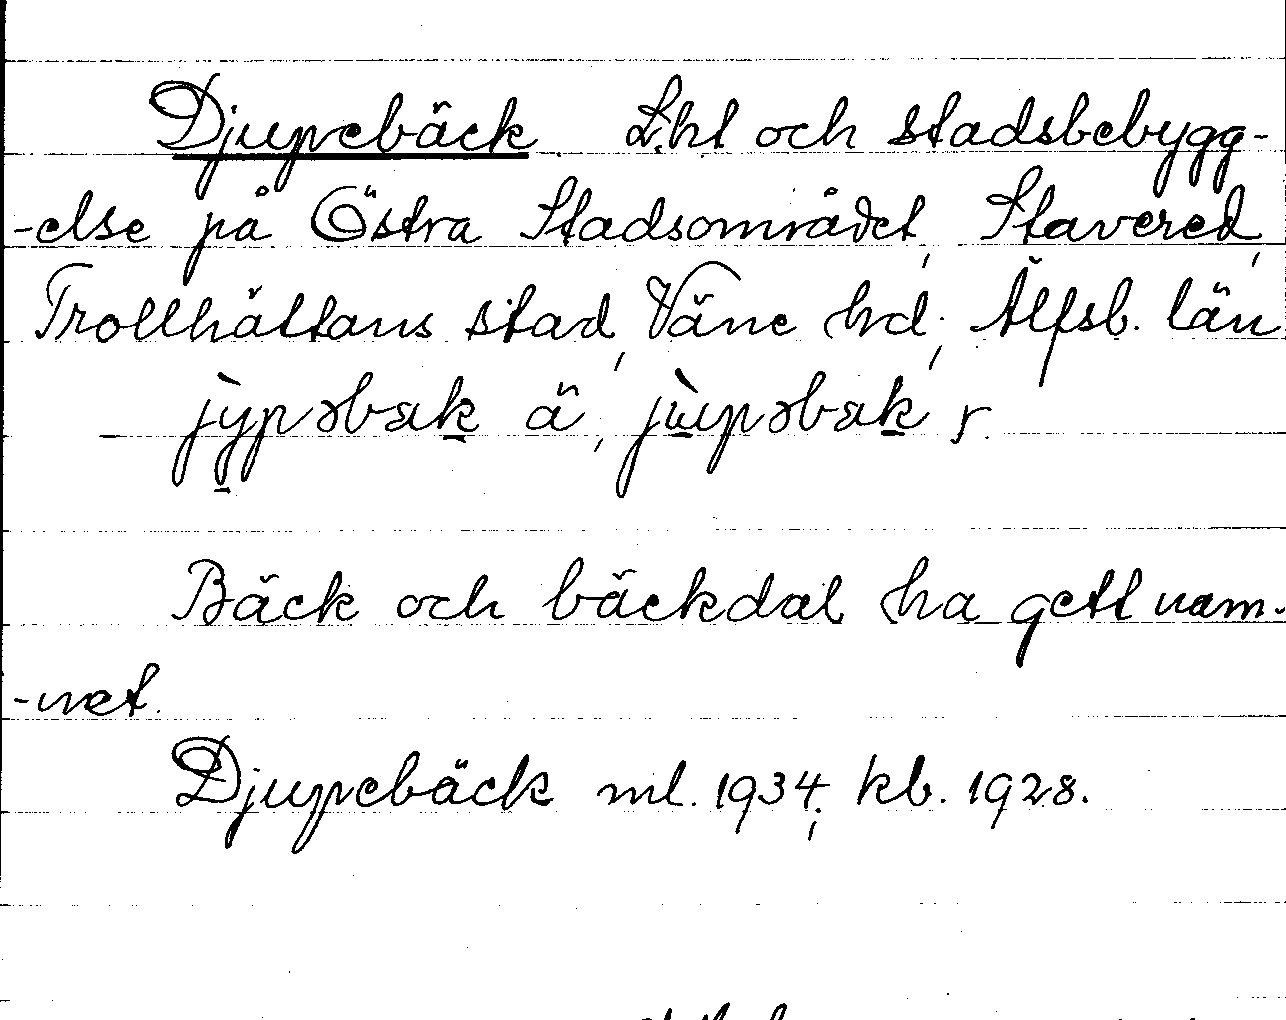 Djupebäck. L.ht och stadsbebygg-
-else på Östra Stadsområdet, Stavered,
Trollhättans stad, Väne hd, Älfsb. län
jỳpəbak ä, jùpəbak r.
Bäck och bäckdal ha gett nam-
-net.
Djupebäck ml. 1934; kb. 1928.